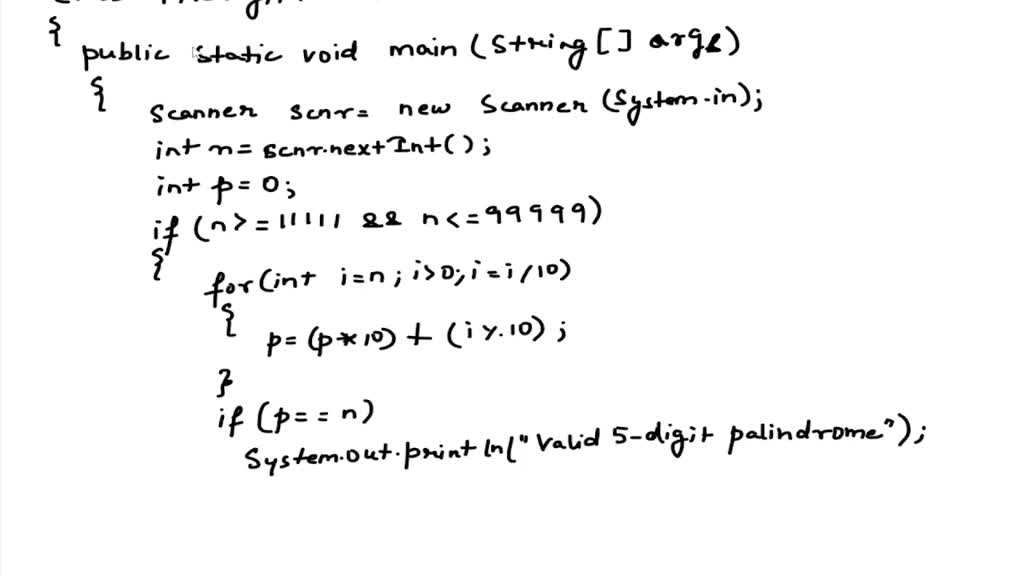 {
public static void main (String [] args)
{
Scanner scnr= new Scanner (System.in);
int n= scnr.nextInt();
int p= 0;
if (n>=11111 && n<=99999)
{
for(int i=n; i>0; i=i/10)
{
p= (p*10) + (i%10);
}
if (p==n)
System.out.println("Valid 5-digit palindrome");